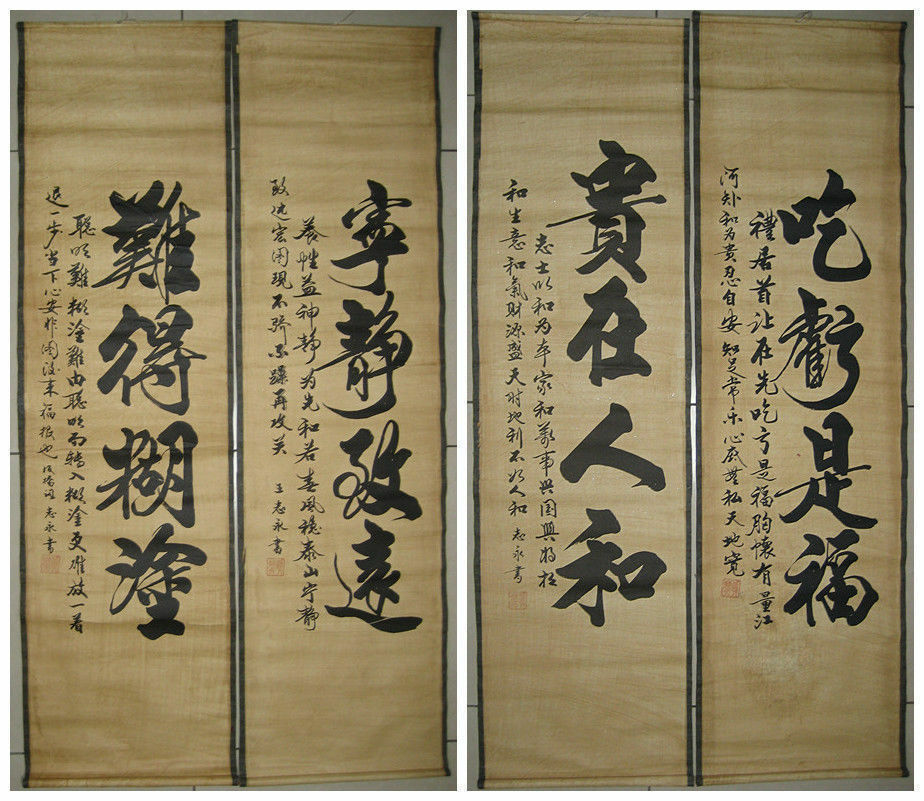 吃虧是福
禮居首让在先吃亏是福胸懷有量江
河和为貴忍自安知足常乐心底無私天地寬
貴在人和
志士以和为本家和萬事興国興將相
和生意和氣財源盛天时地利不如人和 志永書
寧靜致遠
养性益神静为先和若春风稳泰山宁静
致远宏图現不骄不躁再攻关 王志永書
難得糊塗
聪明難糊塗難由聪明而轉入糊塗更难放一着
退一步当下心安非图後来福报也 志永書